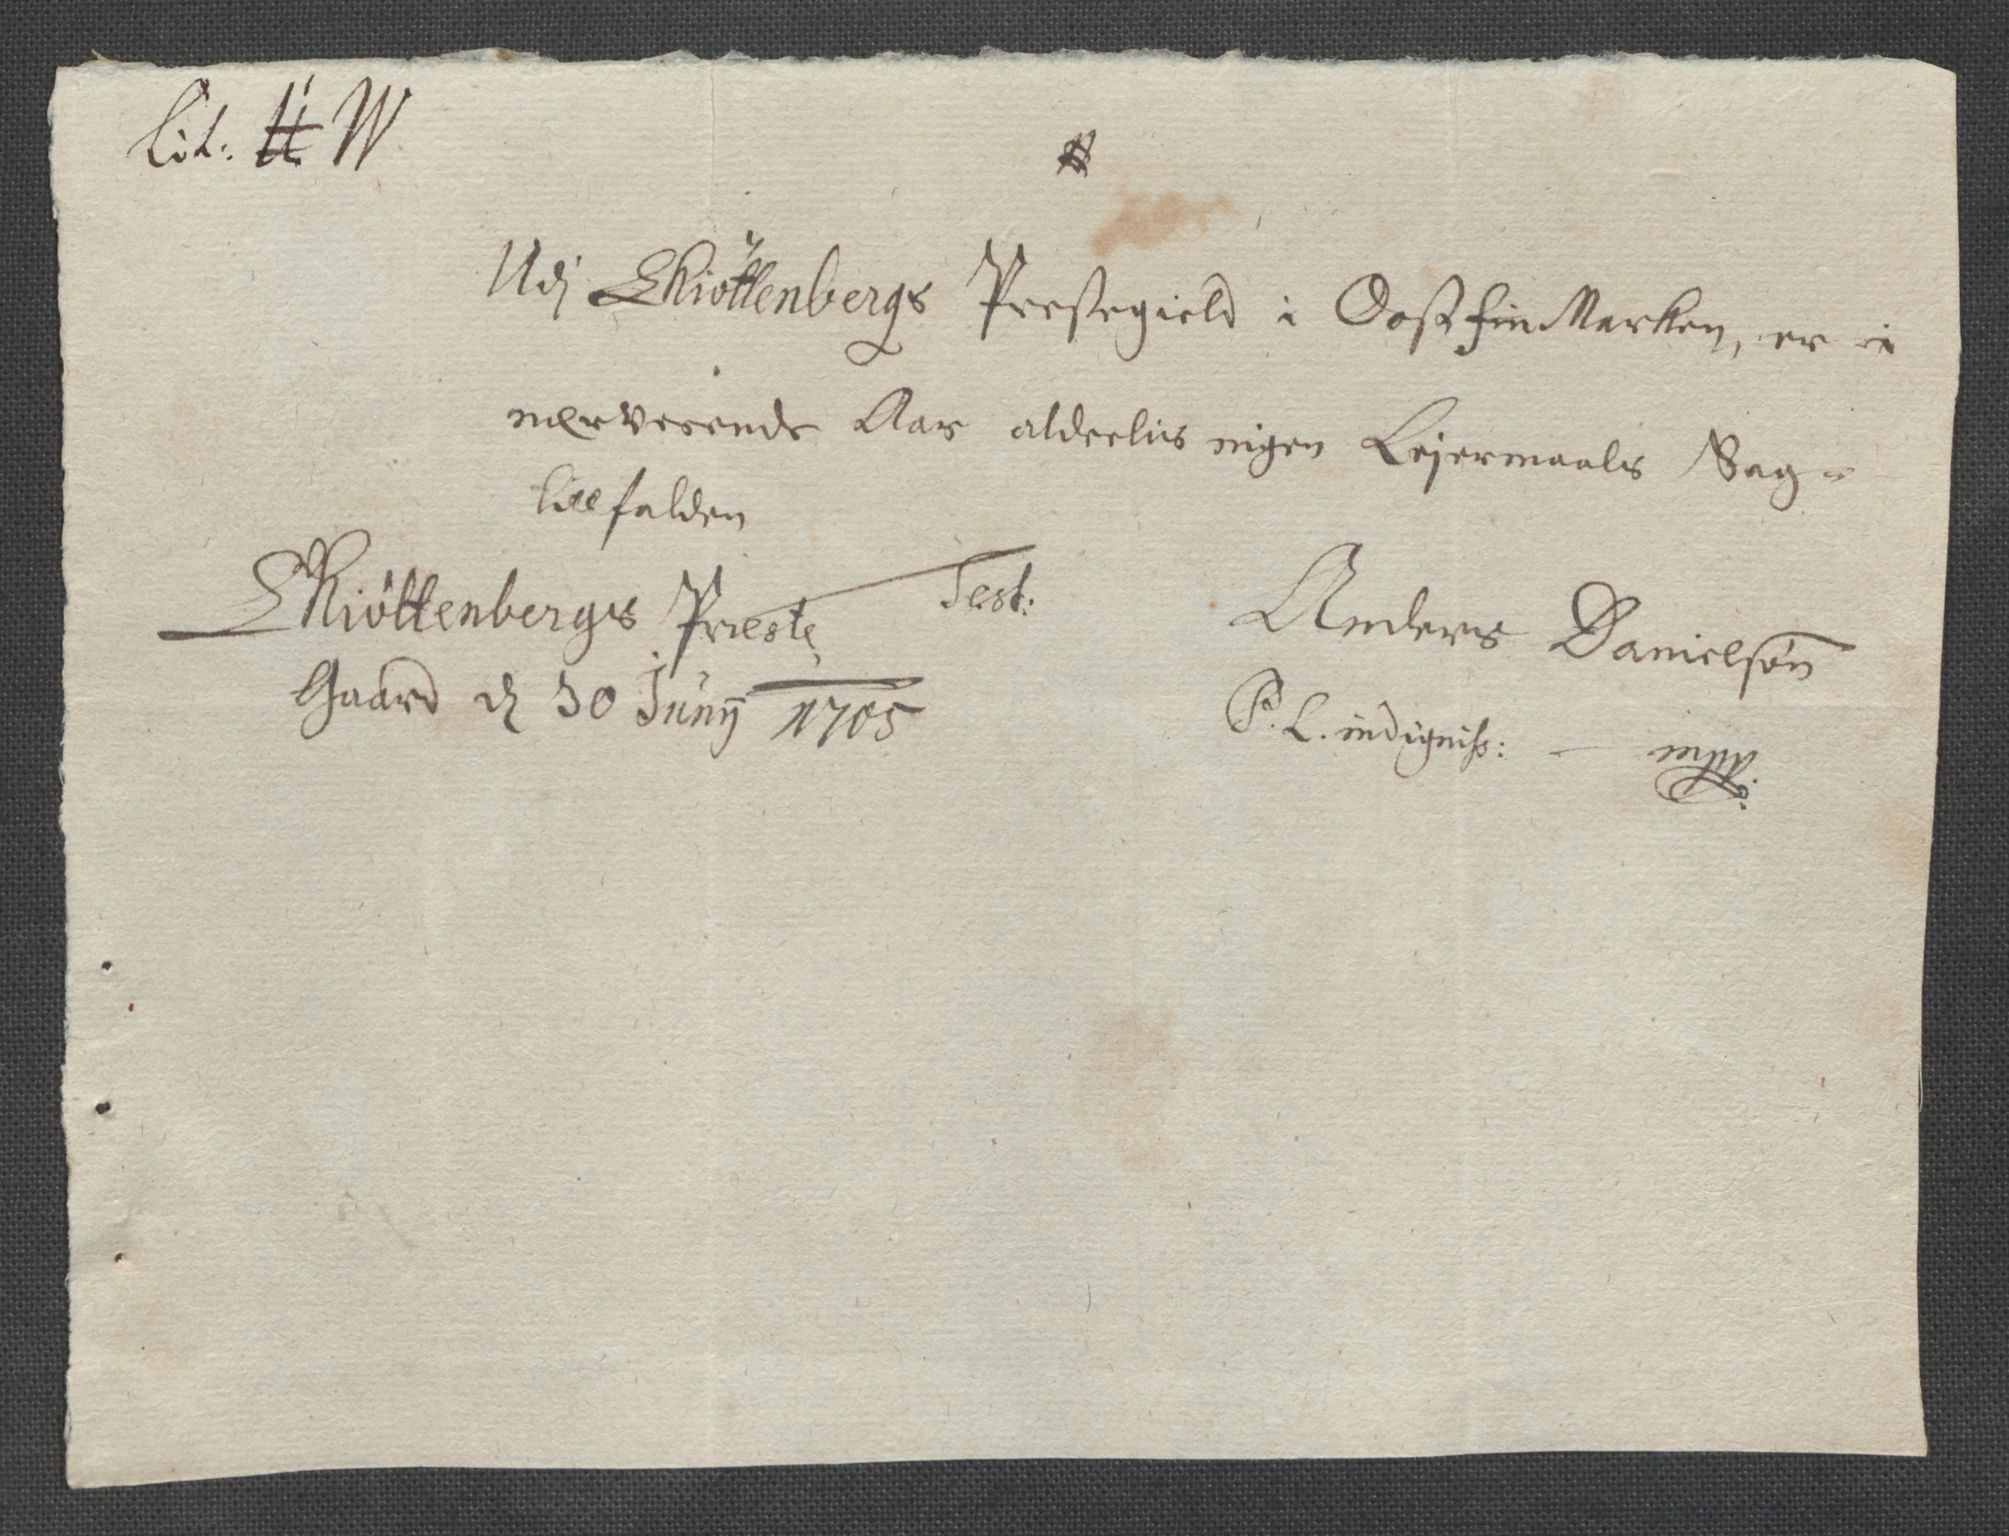 Lit: W
Udj Kiöllenbergs Prestegield i Ost finMarken, er i
nærverende Aar aldeelis ingen Lejermaals Sag
tilfalden
Kiöllenbergs Prieste Test:
Gaard d 30 Junij 1705
Anders Danielsøn
P. L. indigniss: — mpp.